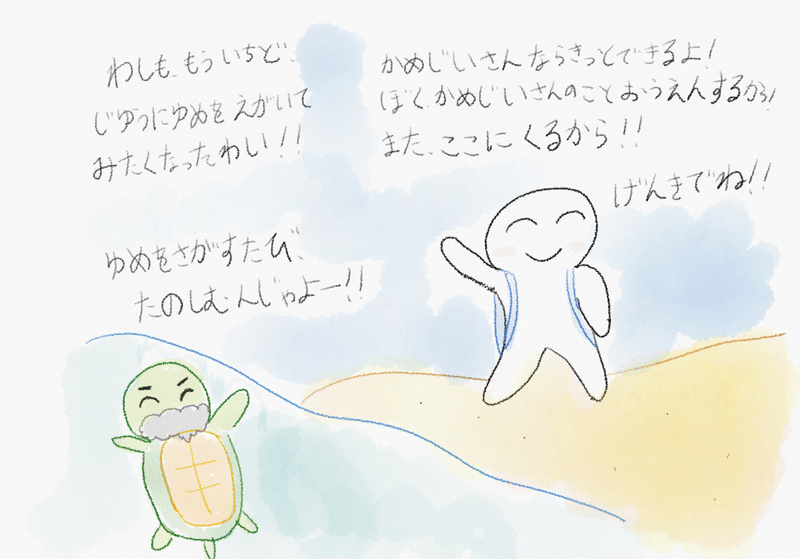 わしも、もういちど、
じゆうにゆめを えがいて
みたくなったわい!!
かめじいさんならきっとできるよ!
ぼく、かめじいさんのこと おうえんするから!
また、ここに くるから!!
げんきでね!!
ゆめをさがすたび、
たのしむんじゃよー!!